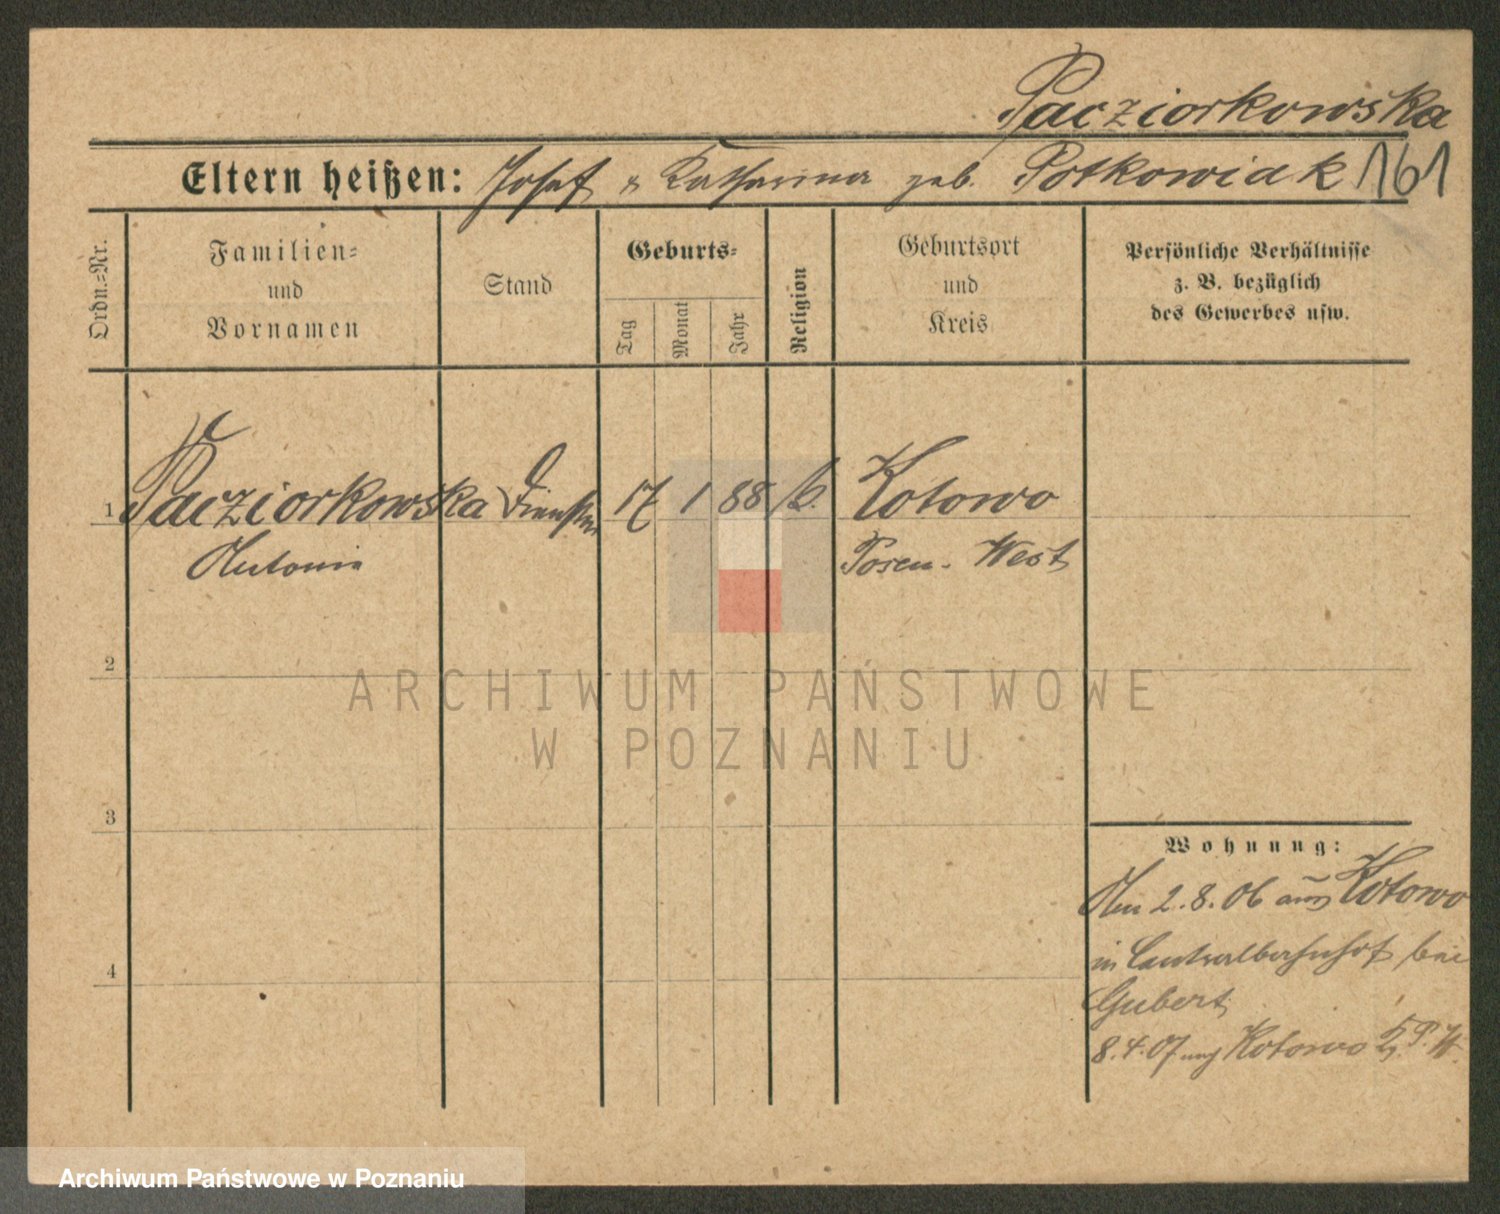 Pacziorkowska
Eltern heißen: Josef & Katharina geb. Potkowiak 161
Ordn.-Nr.
Familien-
und
Vornamen
Stand
Geburts-
Tag
Monat
Jahr
Religion
Geburtsort
und
Kreis
Persönliche Verhältnisse
z. B. bezüglich
des Gewerbes usw.
1 Pacziorkowska 17 1 88 k. Kotowo
Antonie Posen-West
2
3
4
Wohnung:
Am 2.8.06 aus Kotowo
in Centralbahnhof bei
Gubert
8.4.07 nach Kotowo K. P. W.
ARCHIWUM PAŃSTWOWE
W POZNANIU
Archiwum Państwowe w Poznaniu